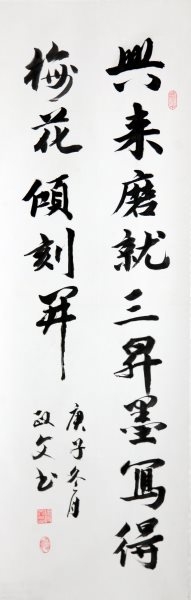 興来磨就三昇墨寫得
梅花傾刻開
庚子冬月
政文书